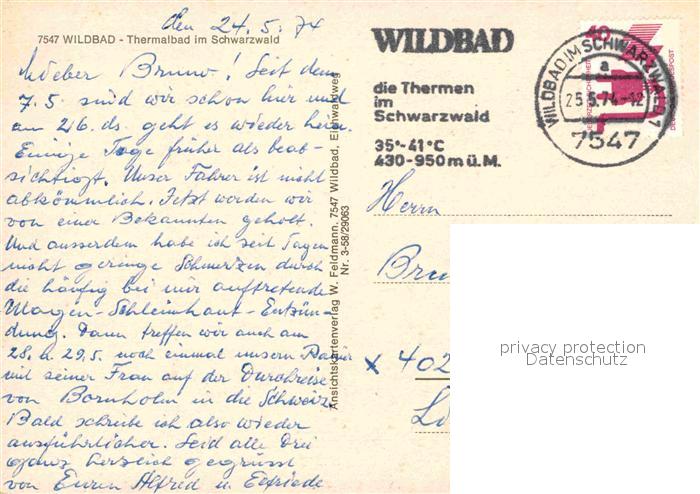 den 24.5.74
7547 WILDBAD - Thermalbad im Schwarzwald
Lieber Bruno! Seit dem
7.5. sind wir schon hier und
am 26. ds. geht es wieder heim.
Einige Tage früher als beab-
sichtigt. Unser Fahrer ist nicht
abkömmlich. Jetzt werden wir
von einer Bekannten geholt.
Und ausserdem habe ich seit Tagen
nicht geringe Schmerzen durch
die häufig bei mir auftretende
Magen-Schleimhaut-Entzün-
dung. Dann treffen wir auch am
28. u. 29.5. noch einmal unsern
mit seiner Frau auf der Durchreise
von Bornholm in die Schweiz.
Bald schreibe ich also wieder
ausführlicher. Seid alle Drei
ganz herzlich gegrüsst
von Euren Alfred u. Elfriede
Ansichtskartenverlag W. Feldmann, 7547 Wildbad, Eichwaldweg
Nr. 3-58/29063
WILDBAD
die Thermen
im
Schwarzwald
35°-41°C
430-950 m ü. M.
WILDBAD IM SCHWARZWALD 1
a
25.5.74-12
7547
40
Herrn
Bru
x 402
privacy protection
Datenschutz